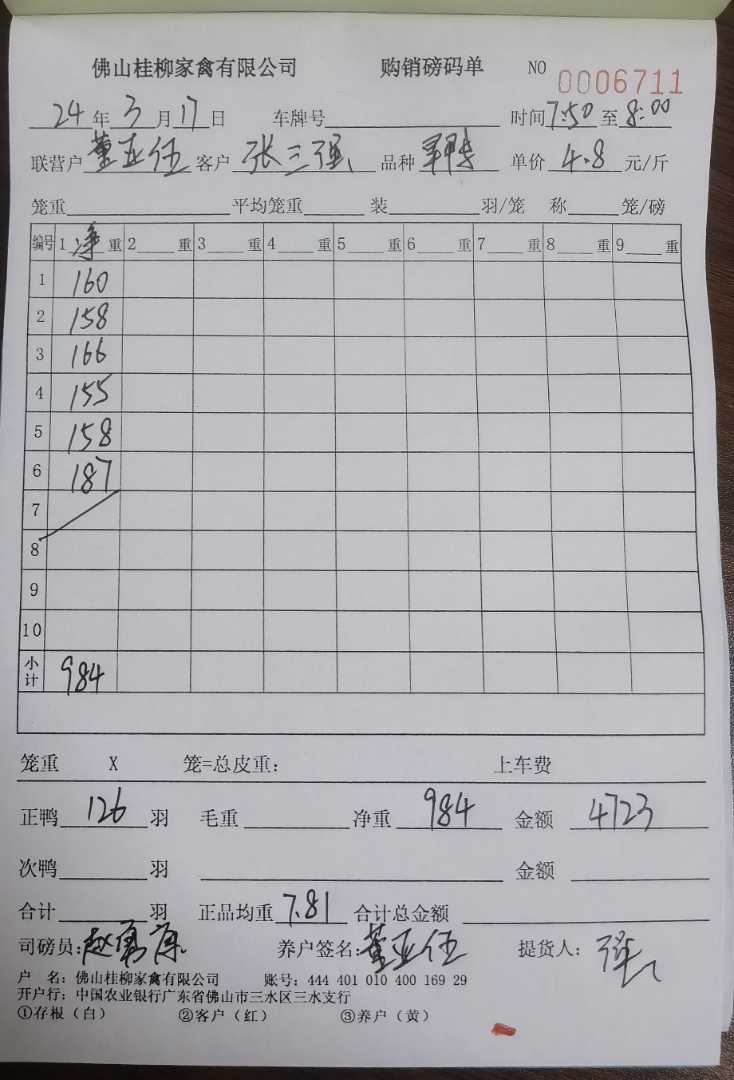 佛山桂柳家禽有限公司 购销磅码单 NO 0006711
24年3月17日 车牌号 时间7:50至8:00
联营户董亚伍 客户张三强 品种 单价4.8元/斤
笼重 平均笼重 装 羽/笼 称 笼/磅
编号 1净重 2 重 3 重 4 重 5 重 6 重 7 重 8 重 9 重
1 160
2 158
3 166
4 155
5 158
6 187
7
8
9
10
小计 984
笼重 X 笼=总皮重: 上车费
正鸭126羽 毛重 净重984 金额4723
次鸭 羽 金额
合计 羽 正品均重7.81 合计总金额
司磅员: 养户签名:董亚伍 提货人:强
户 名: 佛山桂柳家禽有限公司 账号: 444 401 010 400 169 29
开户行: 中国农业银行广东省佛山市三水区三水支行
①存根(白) ②客户(红) ③养户(黄)